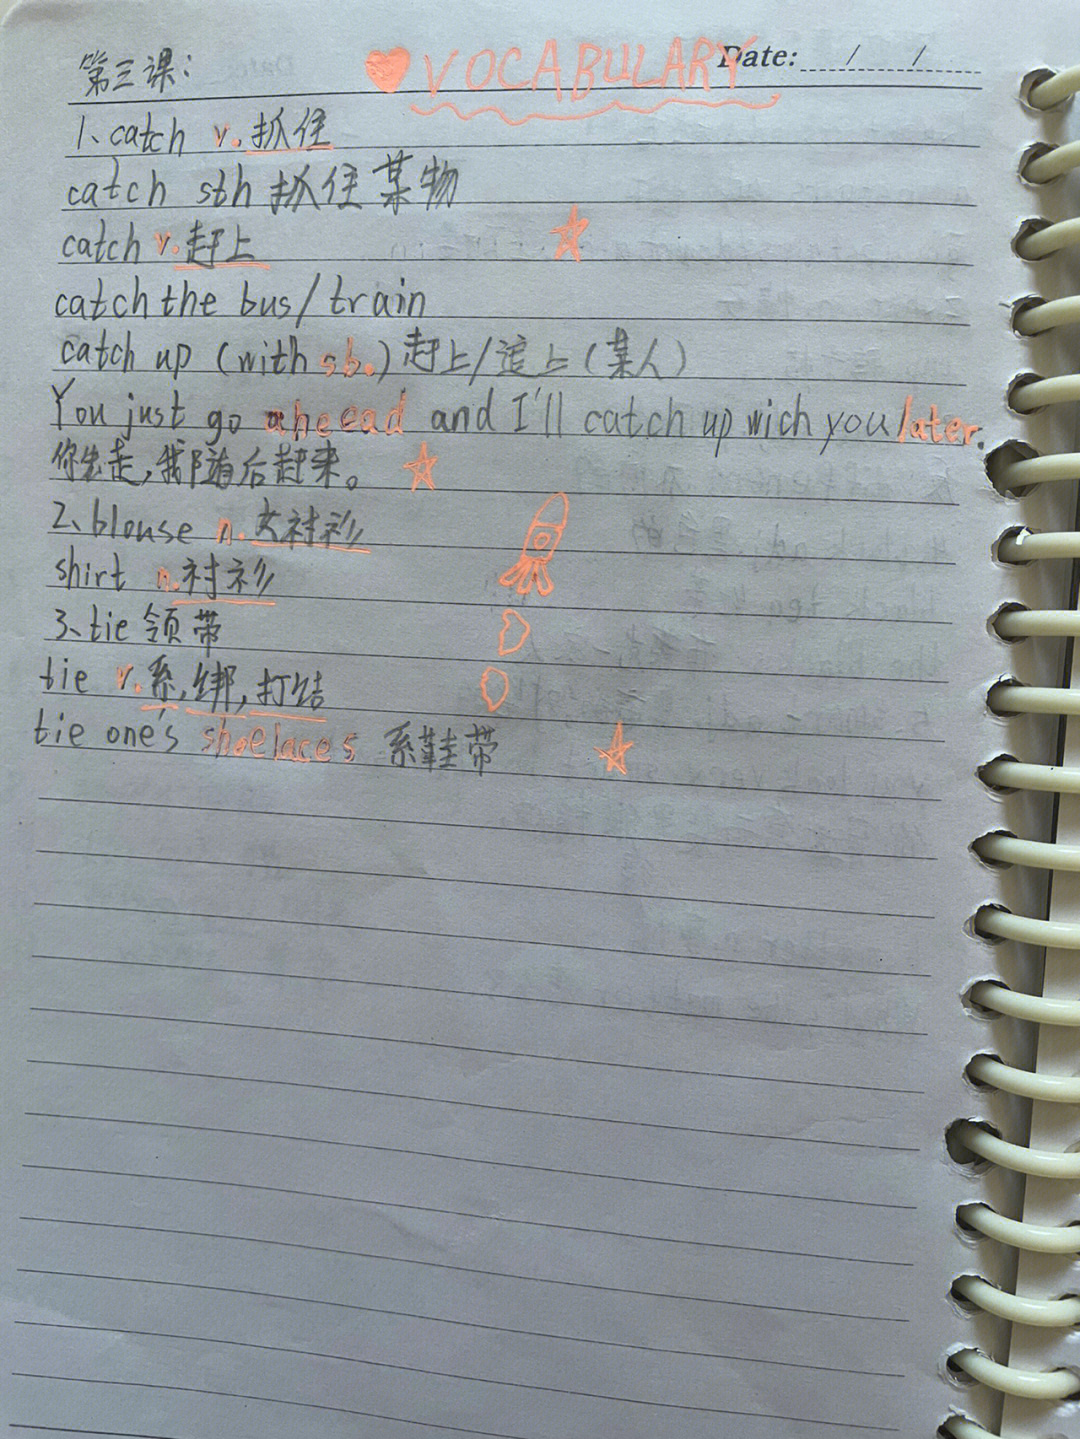 第三课: VOCABULARY Date: / /
1、catch v. 抓住
catch sth 抓住某物
catch v. 赶上
catch the bus/train
catch up (with sb.) 赶上/追上(某人)
You just go ahead and I'll catch up wich you later.
你先走,我随后赶来。
2、blouse n. 女衬衫
shirt n. 衬衫
3、tie 领带
tie v. 系,绑,打结
tie one's shoelaces 系鞋带